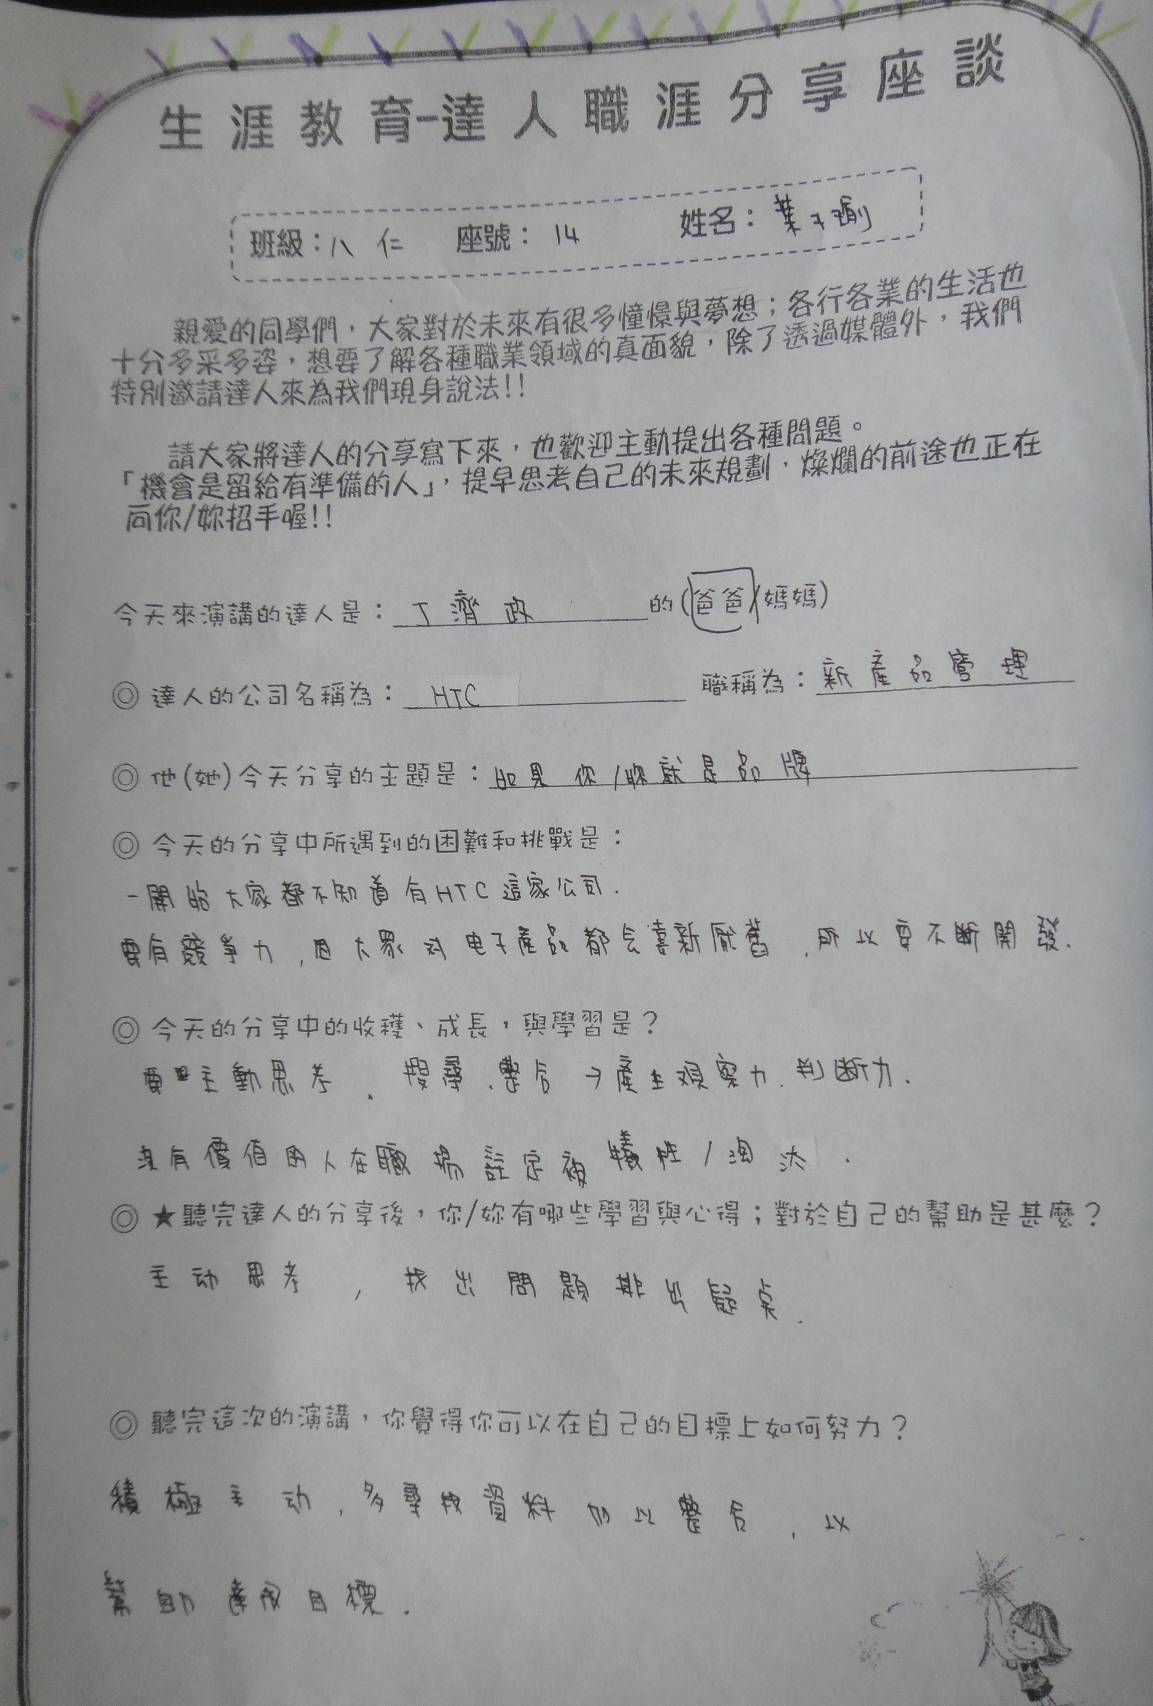 生涯教育-達人職涯分享座談
班級：八仁 座號：14 姓名：葉
親愛的同學們，大家對於未來有很多憧憬與夢想；各行各業的生活也
十分多采多姿，想要了解各種職業領域的真面貌，除了透過媒體外，我們
特別邀請達人來為我們現身說法!!
請大家將達人的分享寫下來，也歡迎主動提出各種問題。
「機會是留給有準備的人」，提早思考自己的未來規劃，燦爛的前途也正在
向你/妳招手喔!!
今天來演講的達人是：丁濟政 的(爸爸/媽媽)
◎ 達人的公司名稱為：HTC 職稱為：新產品管理
◎ 他(她)今天分享的主題是：如果你/妳就是品牌
◎ 今天的分享中所遇到的困難和挑戰是：
一開始大家都不知道有HTC這家公司.
要有競爭力,但大眾对电子產品都会喜新厭舊,所以要不断開發.
◎ 今天的分享中的收穫、成長，與學習是？
要主動思考、搜尋、整合→產生观察力.判断力.
沒有價值的人在職場註定被犧牲/淘汰.
◎ ★聽完達人的分享後，你/妳有哪些學習與心得；對於自己的幫助是甚麼？
主动思考,找出問題排出疑点.
◎ 聽完這次的演講，你覺得你可以在自己的目標上如何努力？
積極主动,多尋找資料加以整合,以
幫助達成目標.